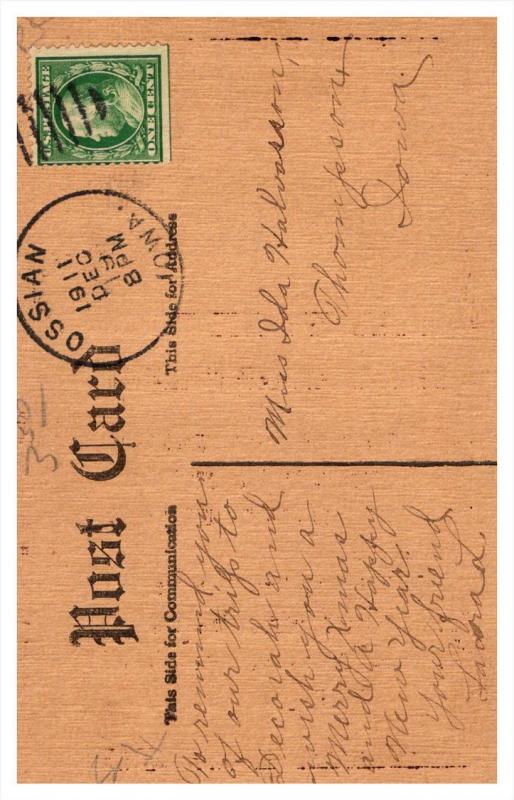 Post Card
This Side for Communication
This Side for Address
U.S. POSTAGE
ONE CENT
OSSIAN
IOWA.
1911
DEC
8 PM
To remind you
of our trip to
Decorah and
wish you a
Merry Xmas
and A Happy
New Year.
Your friend
Miss Ida Halvorson,
Thompson,
Iowa.